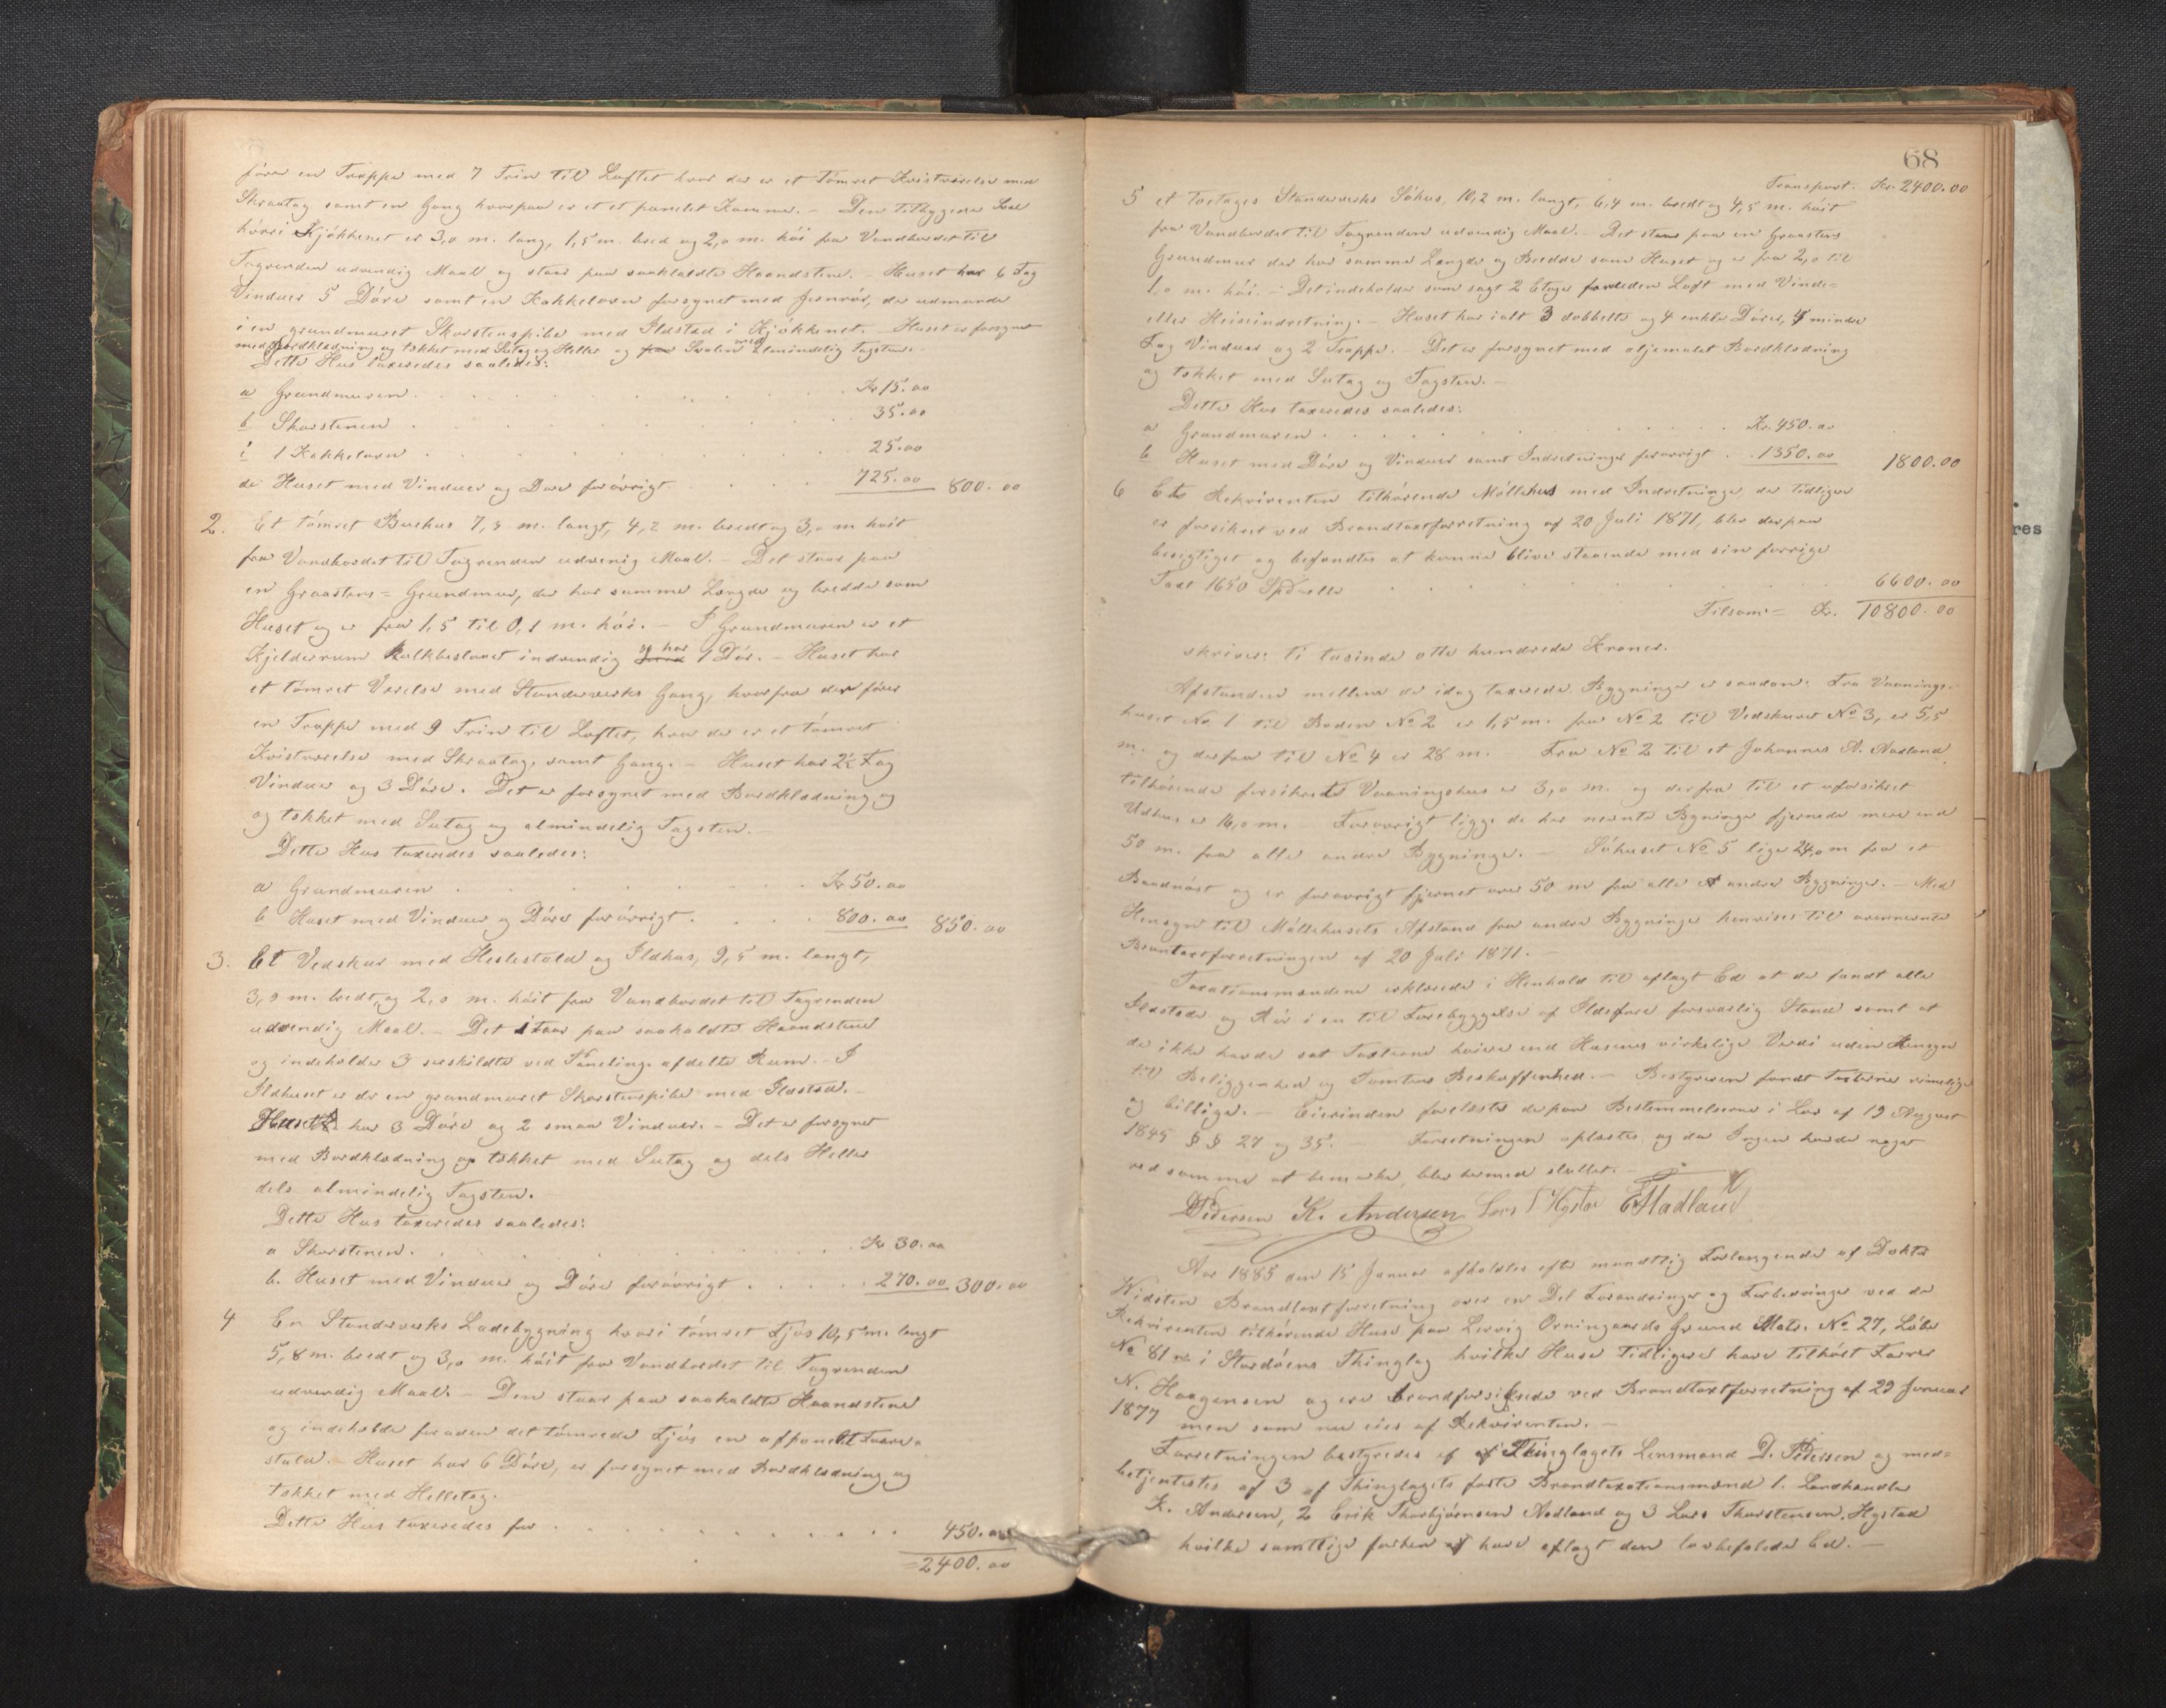 fører en Trappe med 7 Trin til Loftet hvor der er et tømret Kvistværelse med
Skraatag samt en Gang hvorpaa er et et panelet Kammer. – Den tilbyggede Sval
hvori Kjøkkenet er 3,0 m. lang, 1,5 m. bred og 2,0 m. høi fra Vandbordet til
Tagrenden udvendig Maal og staar paa saakaldte Haandstene. – Huset har 6 Fag
Vinduer 5 Døre samt en Kakkelovn forsynet med Jernrør, der udmunde
i en grundmuret Skorstenspibe med Ildsted i Kjøkkenet. – Huset er forsynet
med Bordklædning og tækket med Sutag og Heller og Svalen med almindelig Tagsten.
Dette Hus taxeredes saaledes:
a Grundmuren . . . Kr. 15.00
b Skorstenen . . . 35.00
c 1 Kakkelovn . . . 25.00
d Huset med Vinduer og Døre forøvrigt . . . 725.00 800.00
2. Et tømret Buehus 7,5 m. langt, 4,2 m. bredt og 3,0 m høit
fra Vandbordet til Tagrenden udvenig Maal. – Det staar paa
en Graastens-Grundmur, der har samme Længde og bredde som
Huset og er fra 1,5 til 0,1 m. høi. – I Grundmuren er et
Kjelderrum kalkbeslaaet indvendig og har 1 Dør. – Huset har
et tømret Værelse med Standerværks Gang, hvorfra der fører
en Trappe med 9 Trin til Loftet, hvor der er et tømret
Kvistværelse med Skraatag, samt Gang. – Huset har 2½ Fag
Vinduer og 3 Døre. Det er forsynet med Bordklædning og
og tækket med Sutag og almindelig Tagsten.
Dette Hus taxeredes saaledes:
a Grundmuren . . . Kr 50.00
b Huset med Vinduer og Døre forøvrigt . . . 800.00 850.00
3. Et Vedskur med Hestestald og Ildhus, 9,5 m. langt,
3,9 m. bredt, og 2,0 m. høit fra Vandbordet til Tagrenden
udvendig Maal. – Det staar paa saakaldte Haandstene
og indeholder 3 særskildte ved Paneling afdelte Rum. – I
Ildhuset er der en grundmuret Skorstenspibe med Ildsted. –
Huset har 3 Døre og 2 smaa Vinduer. – Det er forsynet
med Bordklædning og tækket med Sutag og dels Heller
dels almindelig Tagsten.
Dette Hus taxeredes saaledes:
a Skorstenen . . . Kr 30.00
b. Huset med Vinduer og Døre forøvrigt . . . 270.00 300.00
4 En Standerværks Ladebygning hvori tømret Fjøs 10,5 m. langt
5,8 m. bredt og 3,0 m. høit fra Vandbordet til Tagrenden
udvendig Maal. – Den staar paa saakaldte Haandstene
og indeholder foruden det tømrede Fjøs en afpanelet Faare-
stald. Huset har 6 Døre, er forsynet med Bordklædning og
tækket med Helletag.
Dette Hus taxeredes for . . . 450.00
= 2400.00
68
Transport. Kr. 2400.00
5 et toetages Standerværks Søhus, 10,2 m. langt, 6,4 m. bredt og 4,5 m. høit
fra Vandbordet til Tagrenden udvendig Maal. – Det staar paa en Graastens
Grundmur der har samme Længde og Bredde som Huset og er fra 2,0 til
1,0 m. høi. – Det indeholder som sagt 2 Etager foruden Loft med Vinde-
eller Heiseindretning. – Huset har ialt 3 dobbelte og 4 enkle Døre, 4 mindre
Fag Vinduer og 2 Trapper. Det er forsynet med oljemalet Bordklædning
og tækket med Sutag og Tagsten. –
Dette Hus taxeredes saaledes:
a Grundmuren . . . Kr. 450.00
b Huset med Døre og Vinduer samt Indretninger forøvrigt . 1350.00 1800.00
6 Et Rekvirenten tilhørende Møllehus med Indretninger, der tidligere
er forsikret ved Brandtaxtforretning af 20 Juli 1871, blev derpaa
besigtiget og befandtes at kunne blive staaende med sin forrige
Taxt 1650 Spd eller . . . 6600.00
Tilsam= Kr. 10800.00
skriver: ti tusinde otte hundrede Kroner.
Afstanden mellem de idag taxerede Bygninger er saadan: Fra Vaanings-
huset No 1 til Boden No 2 er 1,5 m. fra No 2 til Vedskuret No 3, er 5,5
m. og derfra til No 4 er 28 m. Fra No 2 til et Johannes A. Aadland
tilhørende forsikrede Vaaningshus er 3,0 m. og derfra til et uforsikret
Udhus er 16,0 m. Forøvrigt ligge de her nævnte Bygninger fjernede mere end
50 m. fra alle andre Bygninger. – Søhuset No 5 ligger 24,0 m fra et
Baadnøst og er forøvrigt fjernet over 50 m fra alle andre Bygninger. – Med
Hensyn til Møllehusets Afstand fra andre Bygninger henvises til ovennævnte
Brantaxtforretningen af 20 Juli 1871. –
Taxationsmændene erklærede i Henhold til aflagt Ed at de fandt alle
Ildsteder og Rør i en til Forebyggelse af Ildsfare forsvarlig Stand samt at
de ikke havde sat Taxterne høiere end Husenes virkelige Værdi uden Hensyn
til Beliggenhed og Tomtens Beskaffenhed. – Bestyreren fandt Taxterne rimelige
og billige. – Eierinden forelæstes derpaa Bestemmelserne i Lov af 19 August
1845 § § 27 og 35. – Forretningen oplæstes og da Ingen havde noget
ved samme at bemærke, blev hermed sluttet. –
D Pedersen K. Andersen Lars T Hystad E T Aadland
Aar 1885 den 15 Januar afholdtes efter mundtlig Forlangende af Doktor
Widsten Brandtaxtforretning over en Del Forandringer og Forbedringer ved de
Rekvirenten tilhørende Huse paa Lervig Orningaards Grund Matr. No 27, Løbe
No 81 i Stordøens Thinglag hvilke Huse tidligere have tilhørt Farver
N. Haagensen og ere brandforsikrede ved Brandtaxtforretning af 29 Januar
1877 men som nu eies af Rekvirenten. –
Forretningen bestyredes af Thinglagets Lensmand D. Pedersen og med-
betjentes af 3 af Thinglagets faste Brandtaxationsmænd 1. Landhandler
K. Andersen, 2 Erik Thorbjørnsen Aadland og 3 Lars Thorstensen Hystad
hvilke samtlige forhen have aflagt den lovbefalede Ed. –
res